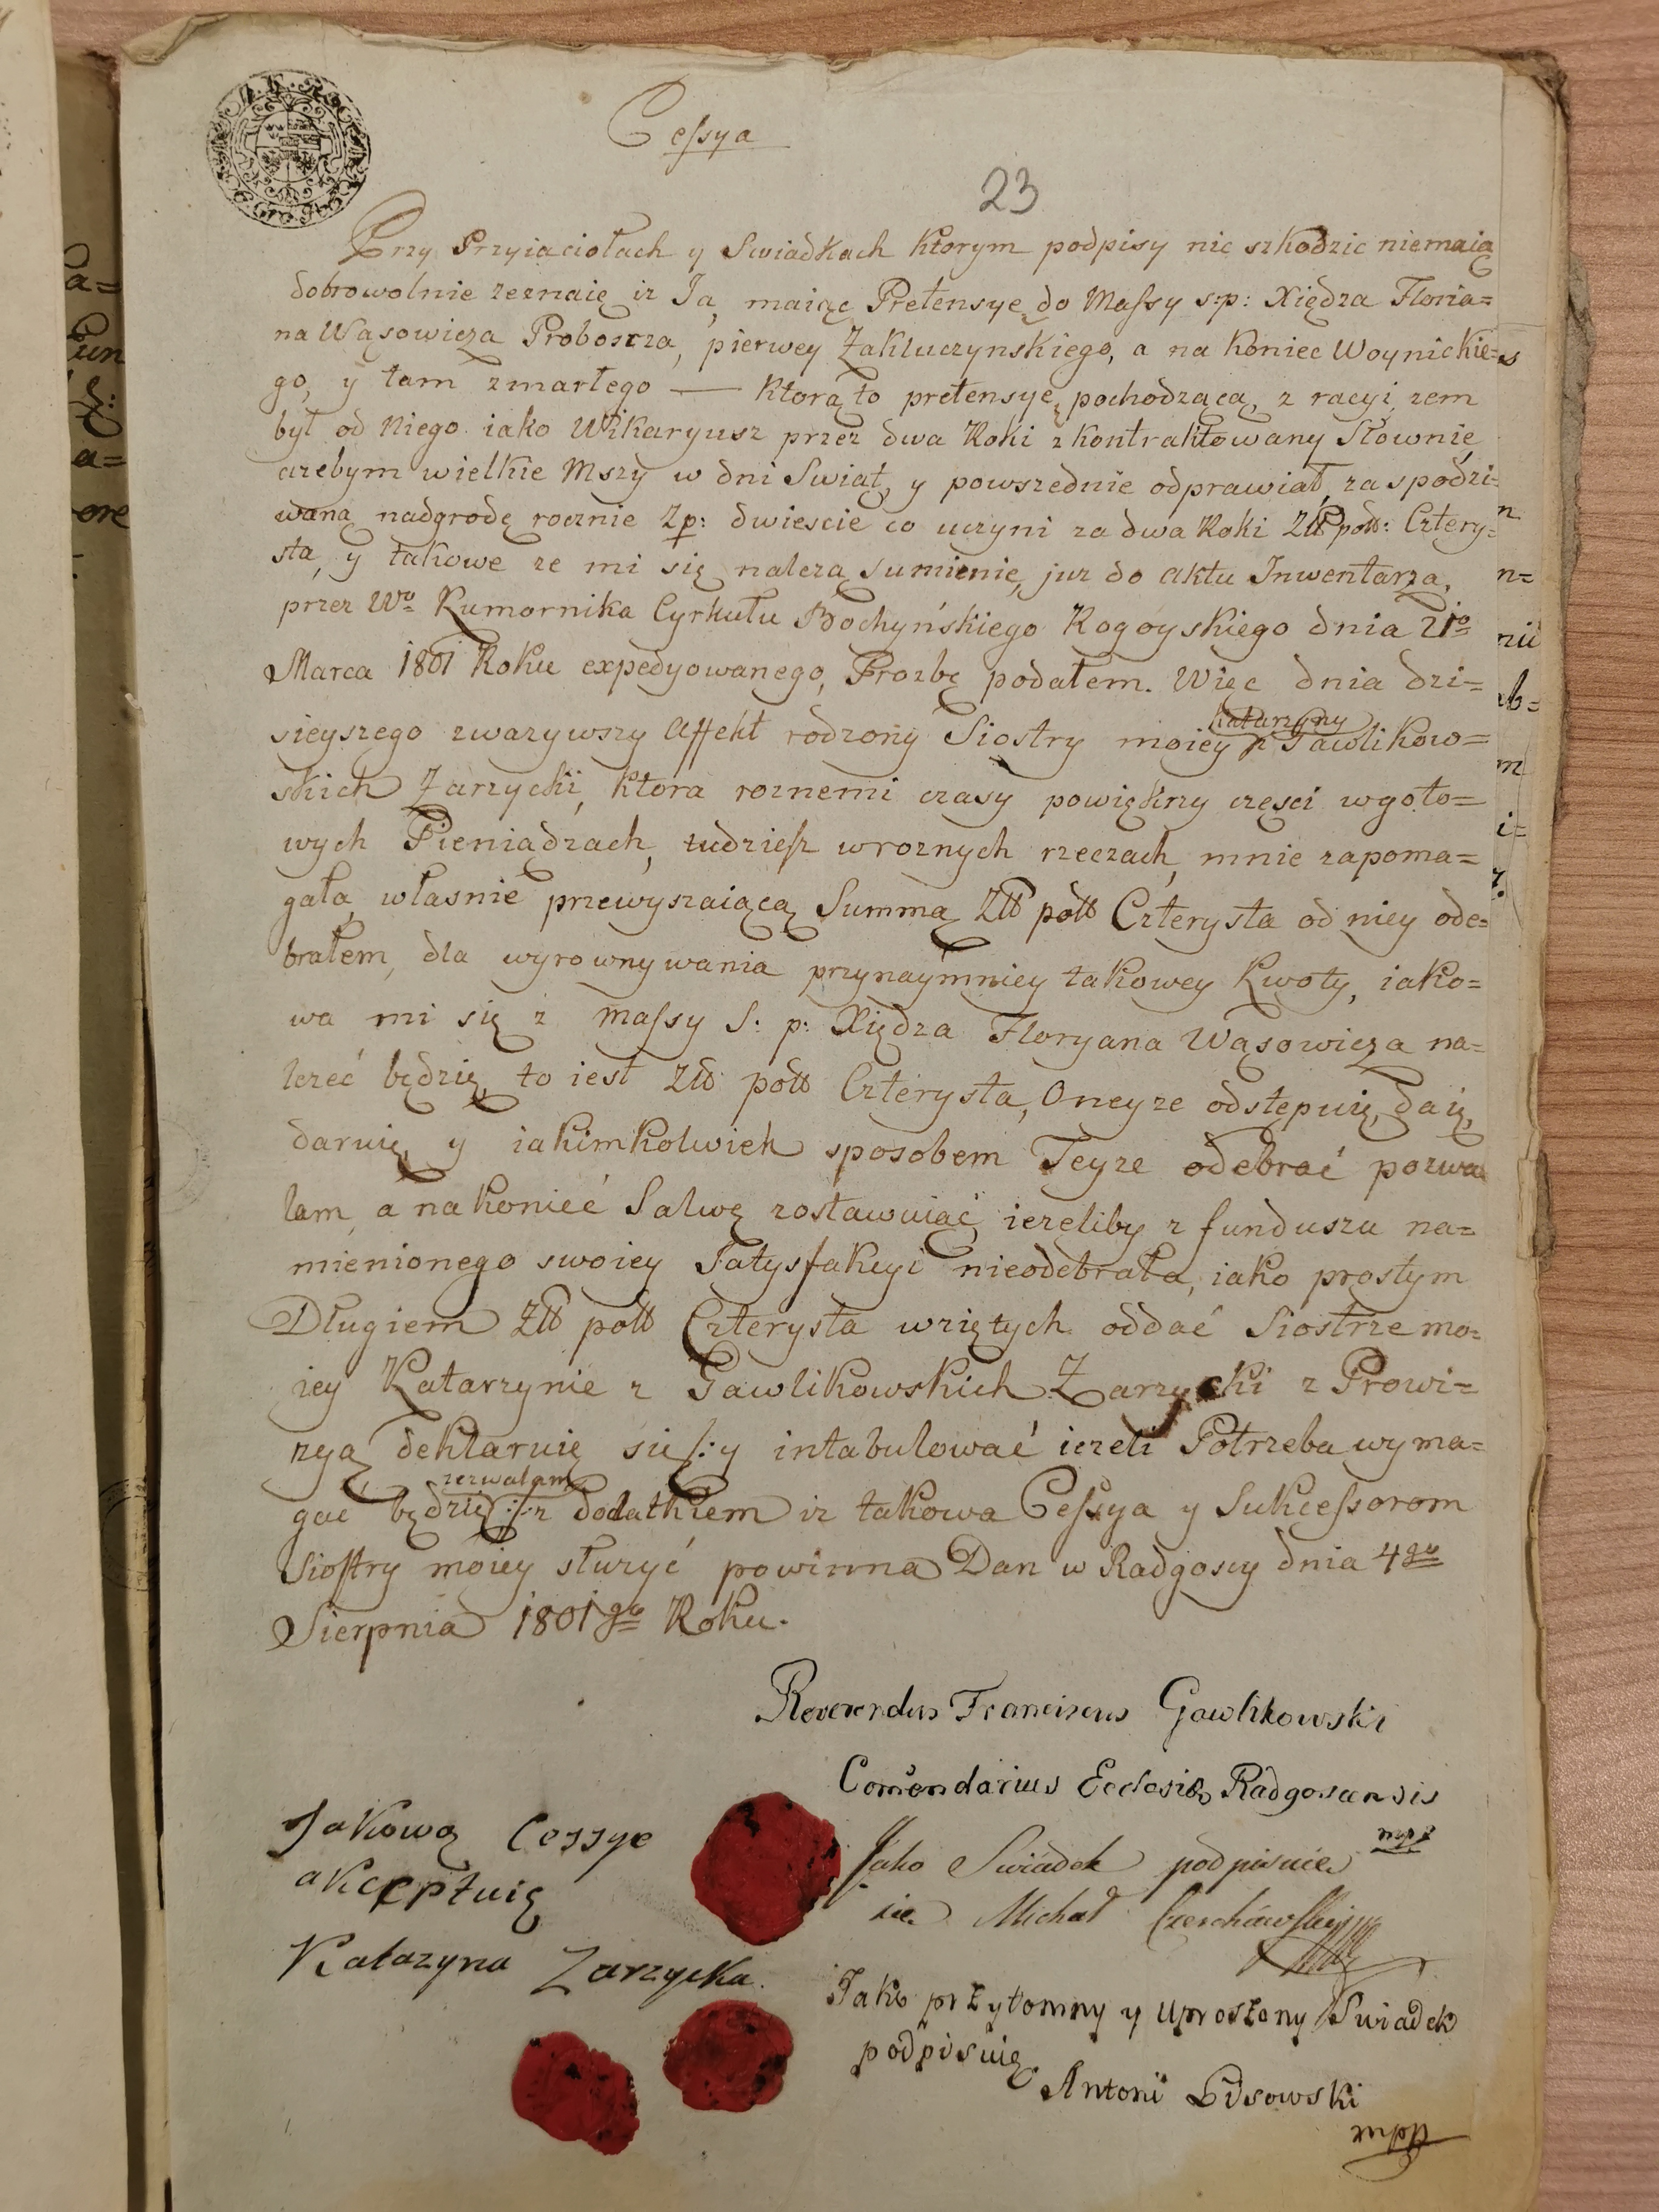 Cessya
23
Przy Przyiaciołach y Swiadkach ktorym podpisy nic szkodzic niemaią
dobrowolnie zeznaię iz Ja, maiąc Pretensyę do Massy s:p: Xiędza Floria=
na Wąsowicza Proboszcza, pierwey Zakluczynskiego, a na koniec Woynickie=
go, y tam zmarłego — ktorą to pretensyę pochodzącą z racyi zem
był od Niego iako Wikaryusz przez dwa Roki zkontraktowany Słownie
azebym wielkie Mszy w dni Swiąt, y powszednie odprawiał, za spodzi=
waną nadgrodę rocznie Zp: dwiescie co uczyni za dwa Roki Złł poll: Cztery=
sta, y takowe ze mi się należą sumienie, juz do aktu Inwentarza,
przez Wo Kumornika Cyrkułu Bochyńskiego Rogoyskiego dnia 21o
Marca 1801 Roku expedyowanego, Prozbę podałem. Więc dnia dzi=
Katarzyny
sieyszego zwazywszy affekt rodzony Siostry moiey z Gawlikow=
skich Zarzycki, ktora roznemi czasy powiękzy części wgoto=
wych Pieniądzach, tudziesz wroznych rzeczach, mnie zapoma=
gała, własnie przewyszaiącą Summą Złł poll Czterysta od niey ode=
brałem, dla wyrownywania przynaymniey takowey Kwoty, iako=
wa mi się z Massy S: p: Xiędza Floryana Wąsowicza na=
lezeć będzie, to iest Złł poll Czterysta, Oneyze odstępuię, daię,
daruię, y iakimkolwiek sposobem Teyze odebrać pozwa
lam, a nakonieć Salwę zostawuiąć, iezeliby z funduszu na=
mienionego swoiey Satysfakcyi nieodebrała, iako prostym
Długiem Złł poll Czterysta wziętych oddać Siostrze mo=
iey Katarzynie z Gawlikowskich Zarzycki z Prowi=
zyą deklaruię się /: y intabulować iezeli Potrzeba wyma=
zezwalam
gac będzie :/ z dodatkiem iz takowa Cessya y Sukcessorom
Siostry moiey słuzyć powinna Dan w Radgoscy dnia 4go
Sierpnia 1801go Roku.
Reverendus Franciscus Gawlikowski
Comendarius Ecclesiæ Radgosensis
mpp
Jakową Cessye
akceptuię
Katazyna Zarzycka.
Jako Swiadek podpisuie
sie Michał
Jako przytomny y uproszony Swiadek
podpisuię
Antoni Lisowski
mpp